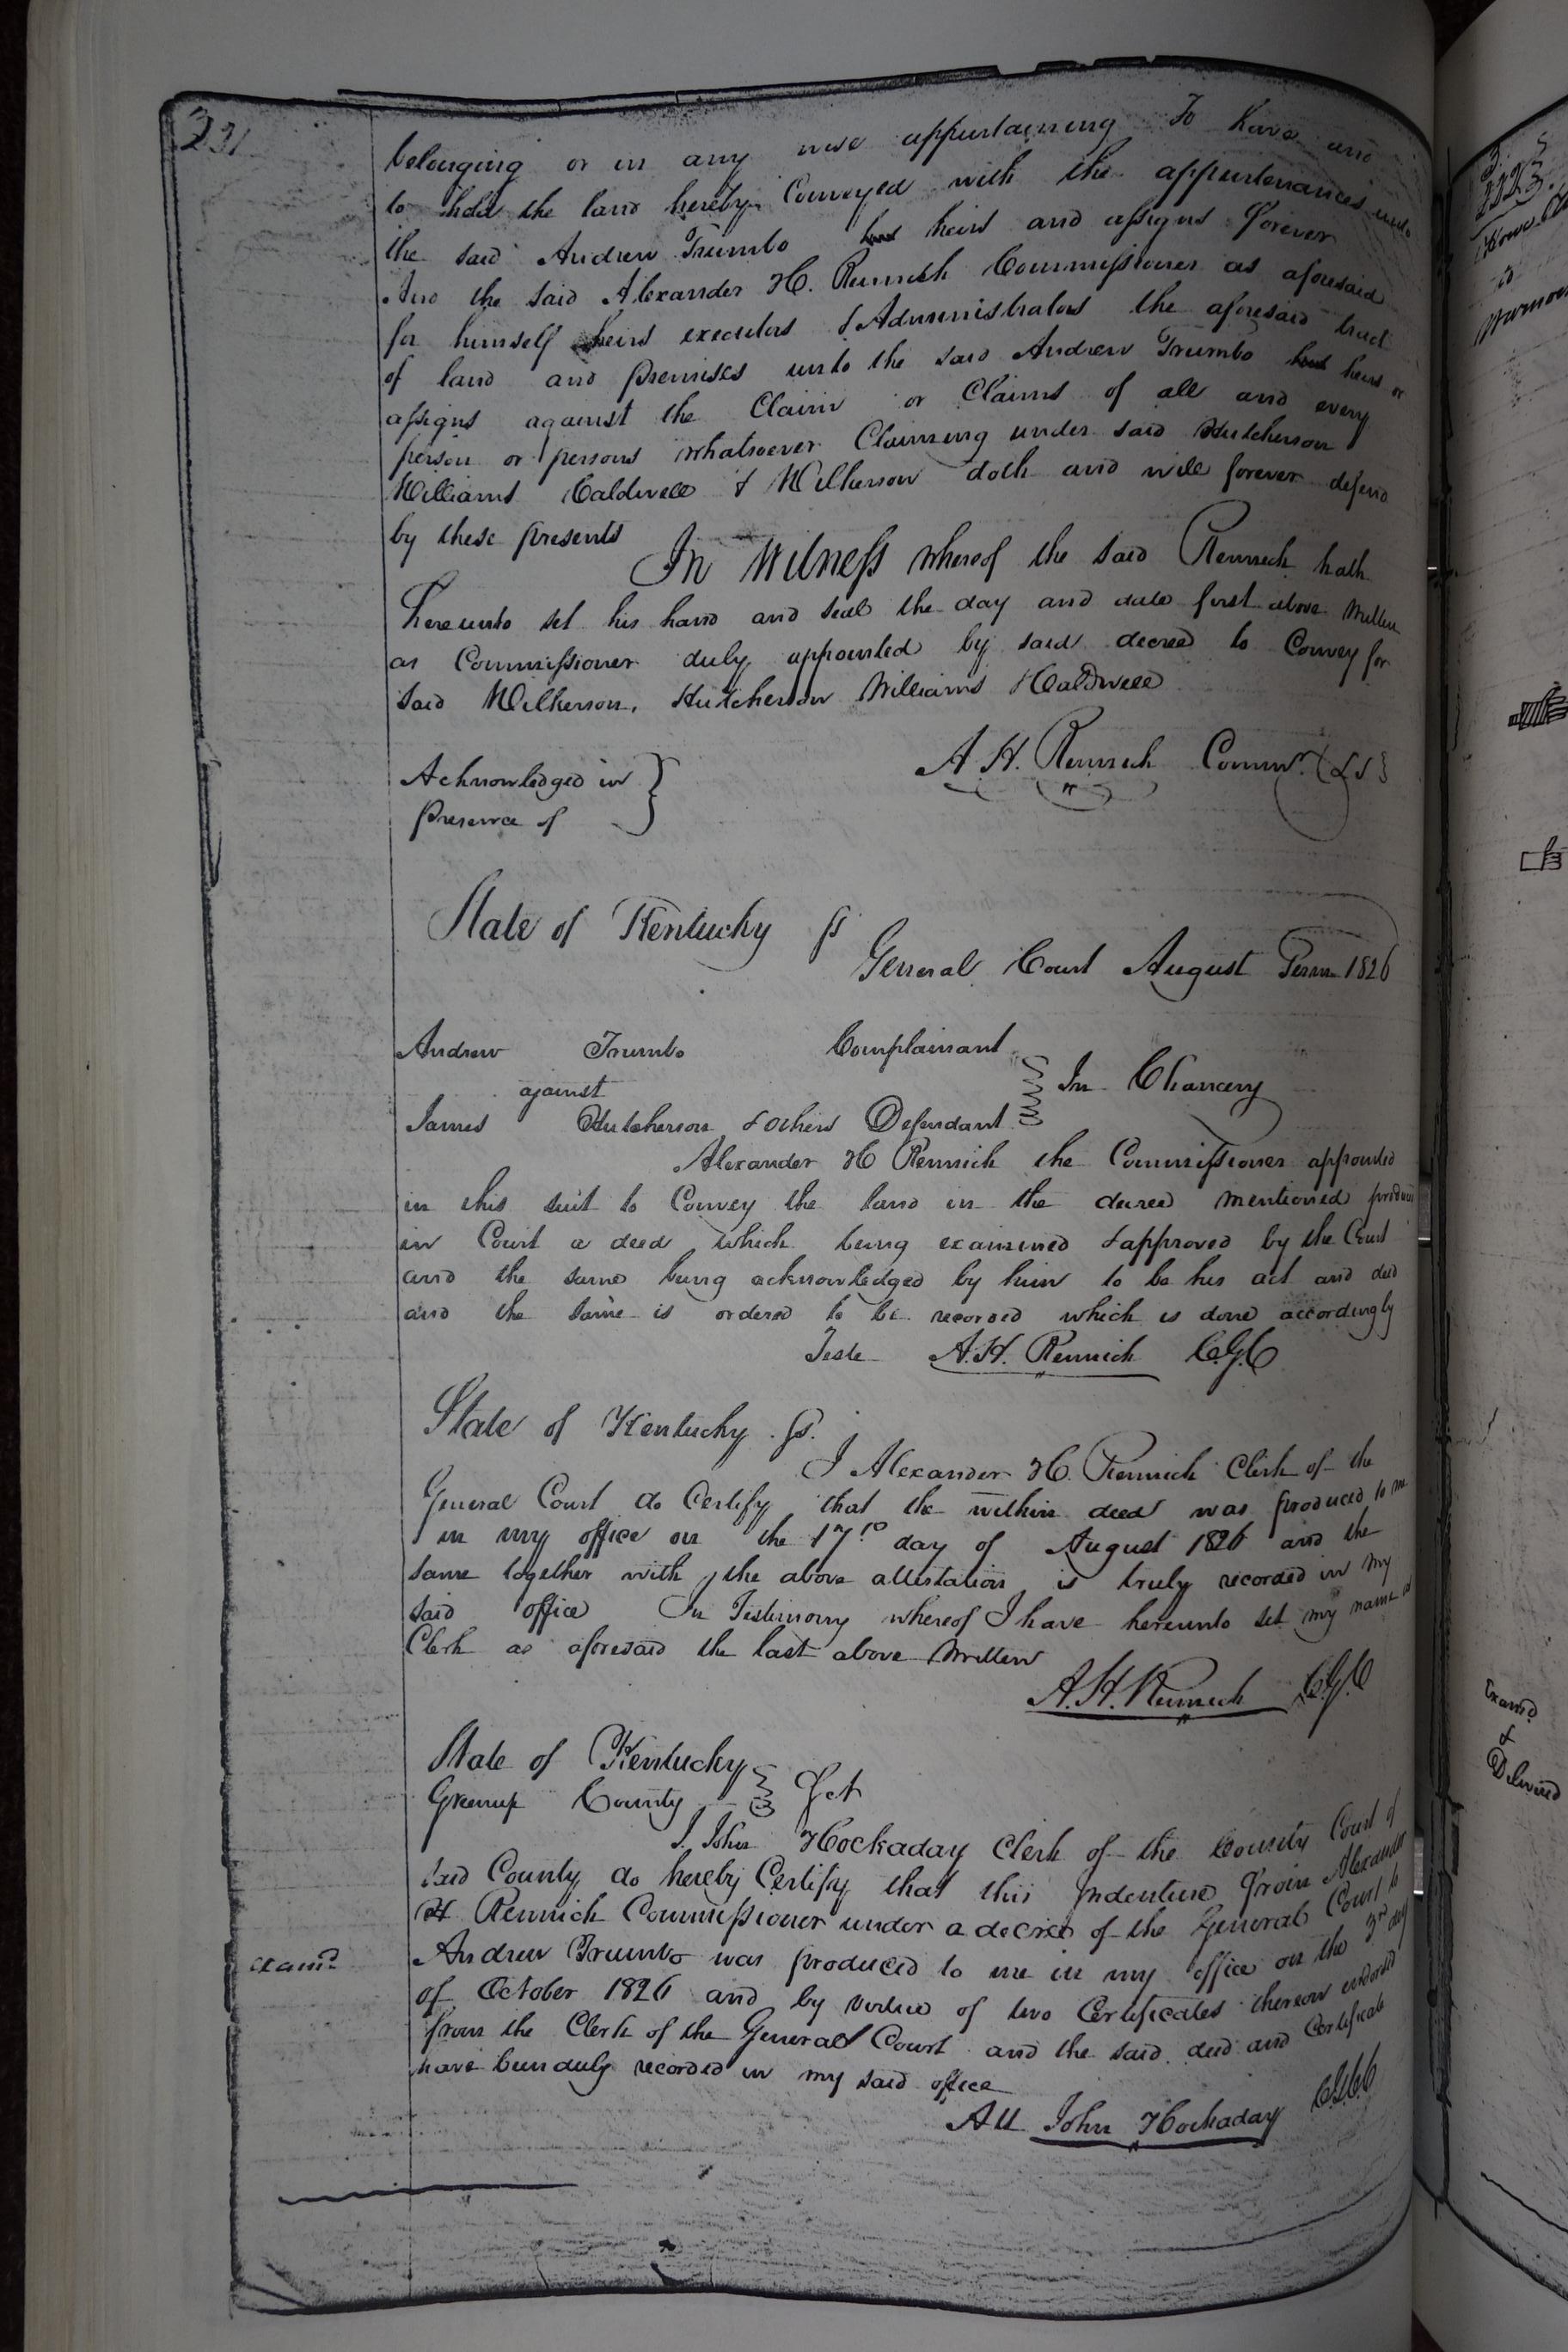 331
belonging or in any wise appurtaining To have and
to hold the land hereby Conveyed with the appurtenances unto
the said Andrew Trumbo heirs and assigns forever
And the said Alexander H. Rennick Commissioner as aforesaid
for himself heirs executors & Administrators the aforesaid tract
of land and premises unto the said Andrew Trumbo heirs or
assigns against the Claim or Claims of all and every
person or persons whatsoever Claiming under said Hutcherson
Williams Caldwell & Wilkerson doth and will forever defend
by these presents
In Witness whereof the said Rennick hath
hereunto set his hand and seal the day and date first above Written
as Commissioner duly appointed by said decree to Convey for
said Wilkerson, Hutcherson Williams & Caldwell
A. H. Rennick Commr. {LS}
Acknowledged in
presence of
State of Kentucky ss
General Court August Term 1826
Andrew Trumbo Complainant
against
In Chancery
James Hutcherson & others Defendant
Alexander H Rennick the Commissioner appointed
in this suit to Convey the land in the decree mentioned produced
in Court a deed which being examined & approved by the Court
and the same being acknowledged by him to be his act and deed
and the same is ordered to be recorded which is done accordingly
Teste A.H. Rennick C.G.C
State of Kentucky ss.
I Alexander H. Rennick Clerk of the
General Court do Certify that the within deed was produced to me
in my office on the 17th day of August 1826 and the
same together with the above attestation is truly recorded in my
said office In Testimony whereof I have hereunto set my name as
Clerk as aforesaid the last above Written
A.H. Rennick C.G.C
State of Kentucky
Greenup County Sct
I John Hockaday Clerk of the County Court of
said County do hereby Certify that this Indenture from Alexander
H Rennick Commissioner under a decree of the General Court to
Andrew Trumbo was produced to me in my office on the 3rd day
Examd
of October 1826 and by virtue of two Certificates thereon endorsed
from the Clerk of the General Court and the said deed and Certificate
have been duly recorded in my said office
Att John Hockaday C.G.C.C
Examd
&
Delivered